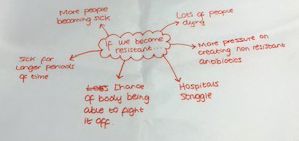 More people
becoming sick
Lots of people
dying
If we become
resistant...
More pressure on
creating non resistant
antibiotics
Sick for
longer periods
of time
Less Chance
of body being
able to fight
it off.
Hospitals
Struggle